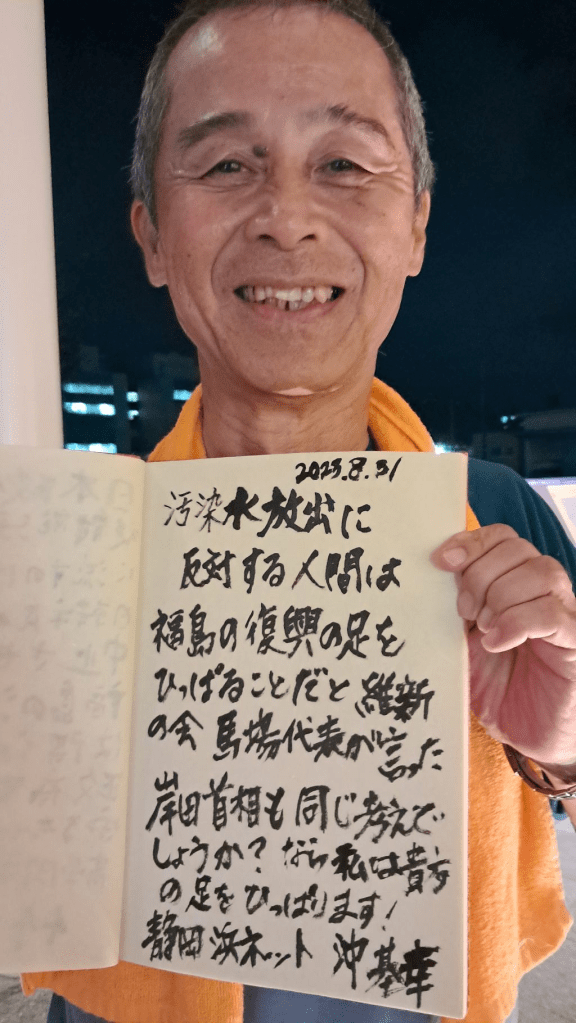 2023.8.31
汚染水放出に
反対する人間は
福島の復興の足を
ひっぱることだと維新
の会 馬場代表が言った
岸田首相も同じ考えで
しょうか? なら私は貴方
の足をひっぱります!
静岡浜ネット 沖基幸